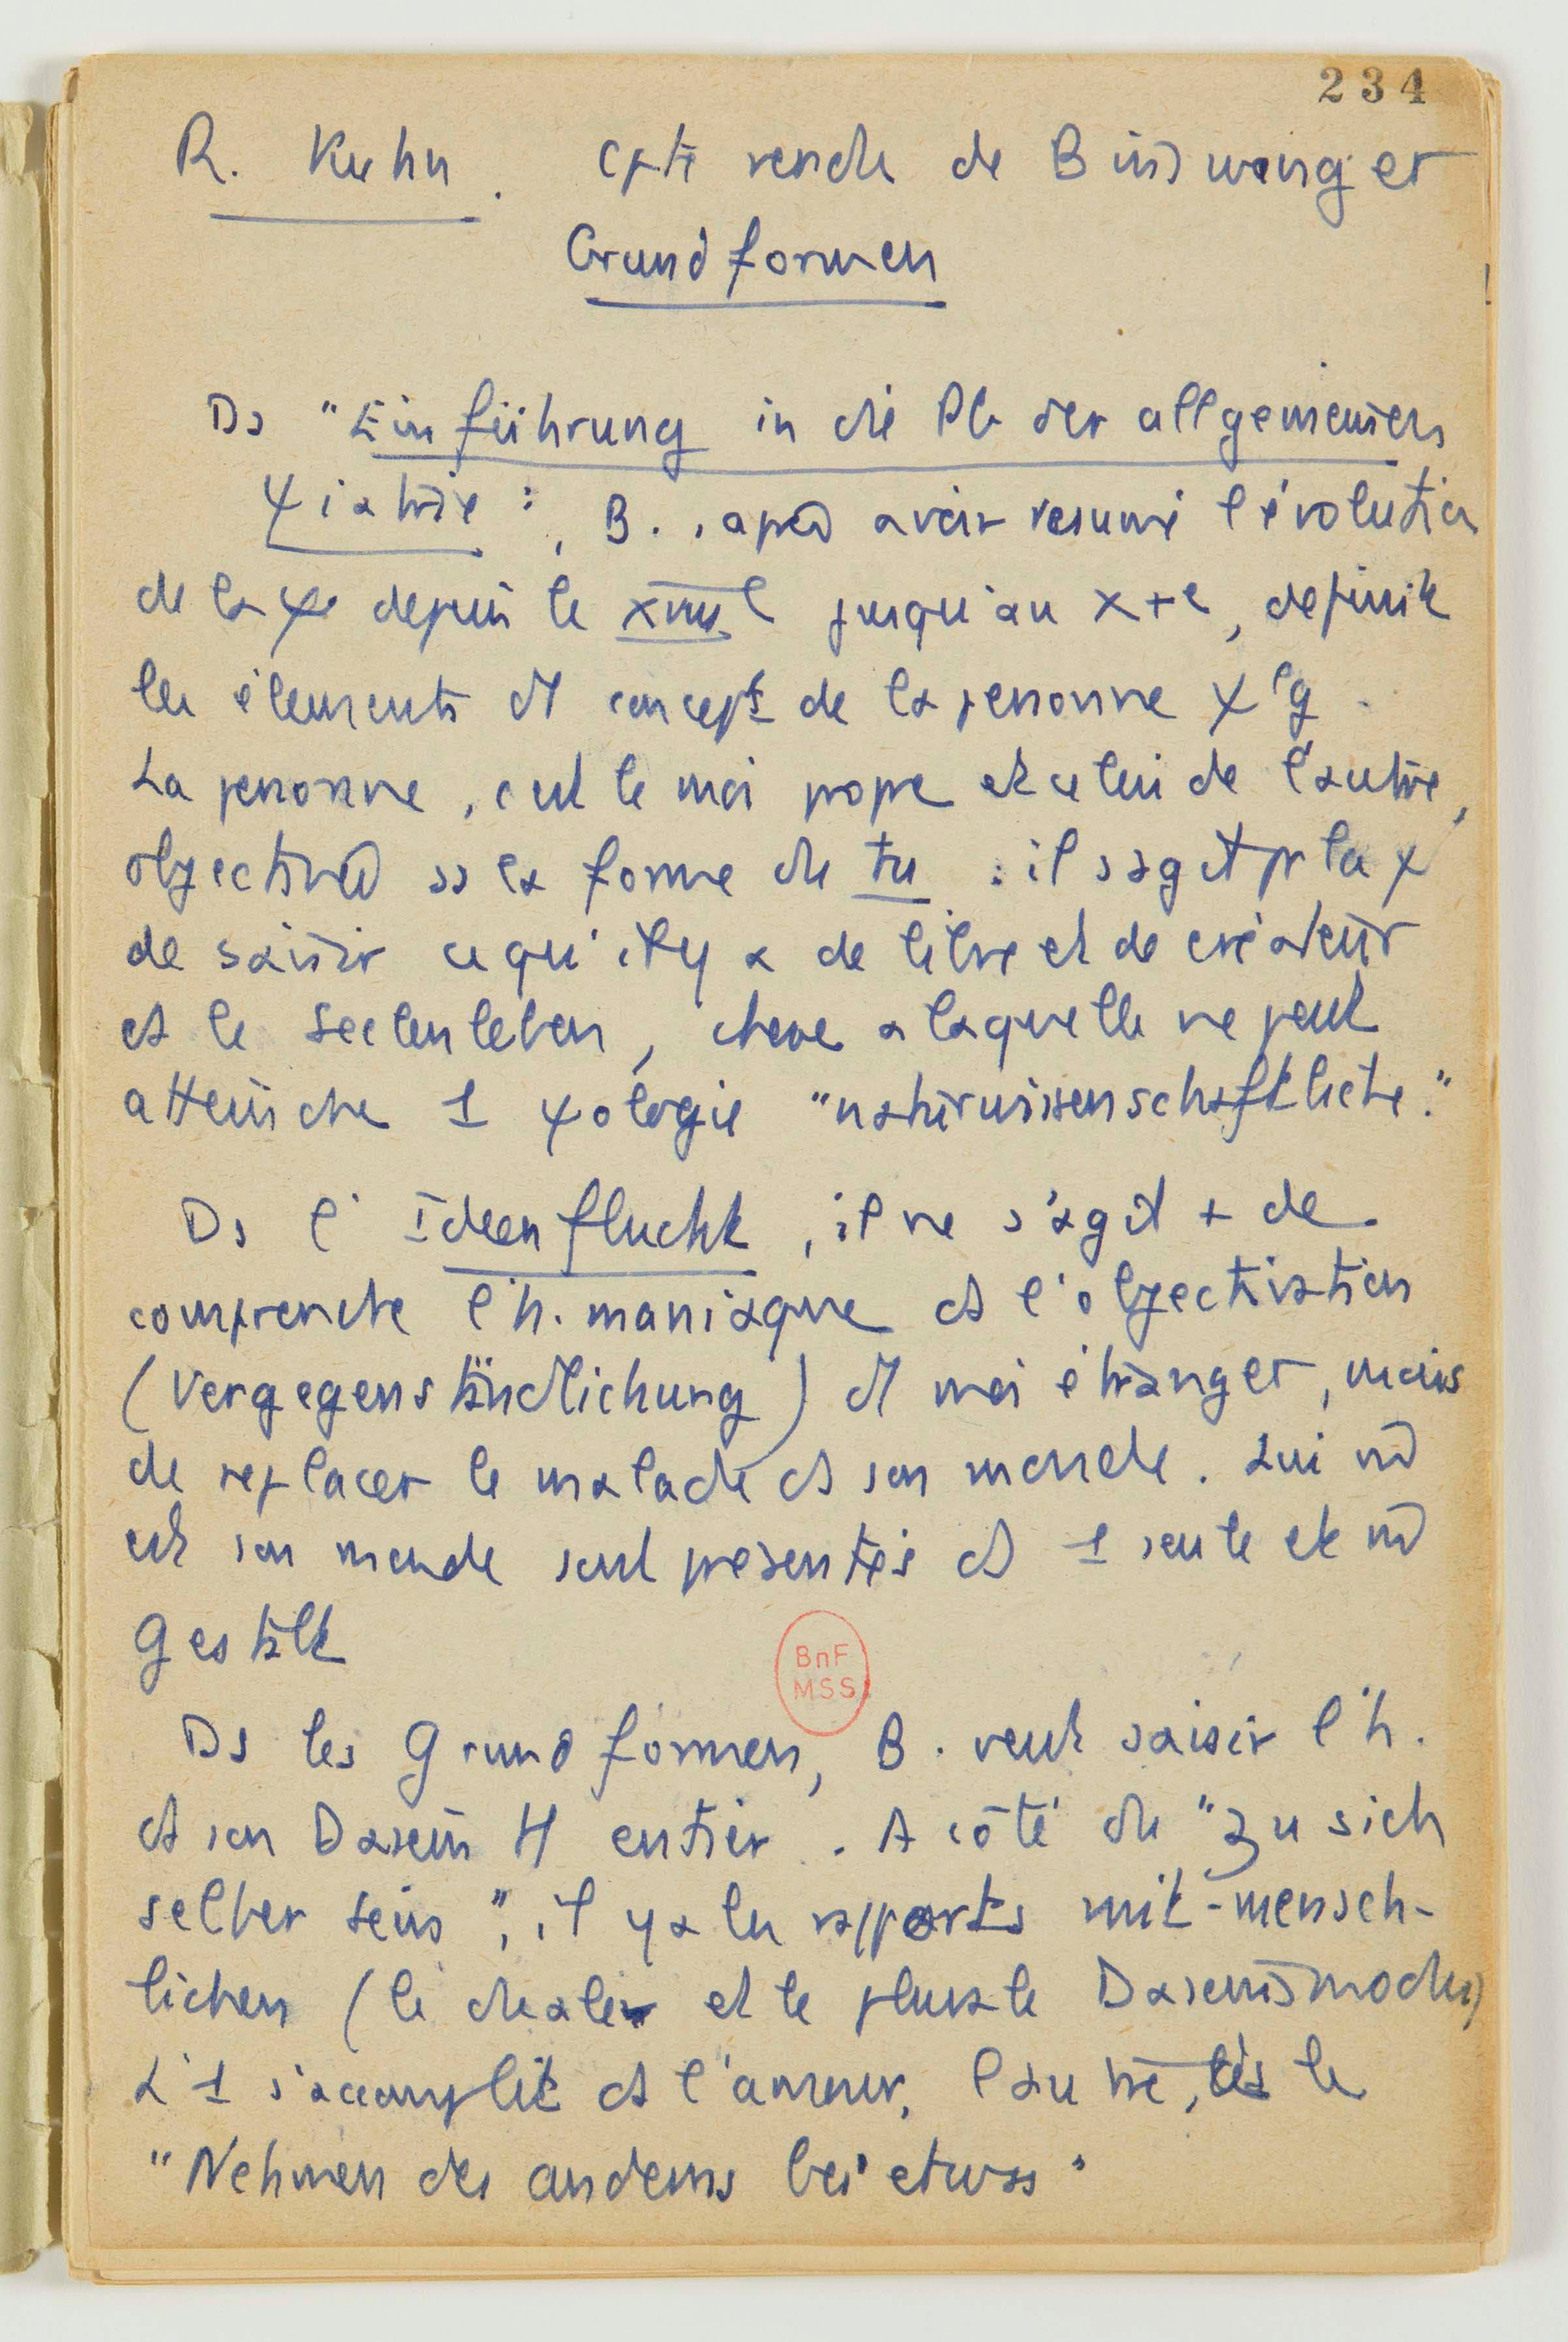 234
R. Kuhn. Cpte rendu de Binswanger
Grundformen
Ds "Einführung in die Pb der allgemeinen
ψiatrie", B., après avoir resumé l'évolution
de la ψie depuis le XVIIIe jusqu'au XXe, definit
les élements et concepts de la personne ψlg.
La personne, c'est le moi propre et celui de l'autre,
objectivé ss la forme du tu : il s'agit pr la ψ
de saisir ce qu'il y a de libre et de créateur
ds le Seelenleben, chose a laquelle ne peut
atteindre 1 ψologie "naturwissenschaftliche."
Ds l'Ideenflucht, il ne s'agit + de
comprendre l'h. maniaque ds l'objectivation
(Vergegenständlichung) d'1 moi étranger, mais
de replacer le malade ds son monde. Lui m̂
et son monde sont présentés ds 1 seule et m̂
Gestalt
Ds les Grundformen, B. veut saisir l'h.
ds son Dasein H entier. A côté du "zu sich
selber sein", il y a les rapports mit-mensch-
lichen (le duale et le plurale Daseinsmodus)
L'1 s'accomplit ds l'amour, l'autre, ds le
"Nehmen des anderns bei etwas"
BnF
MSS